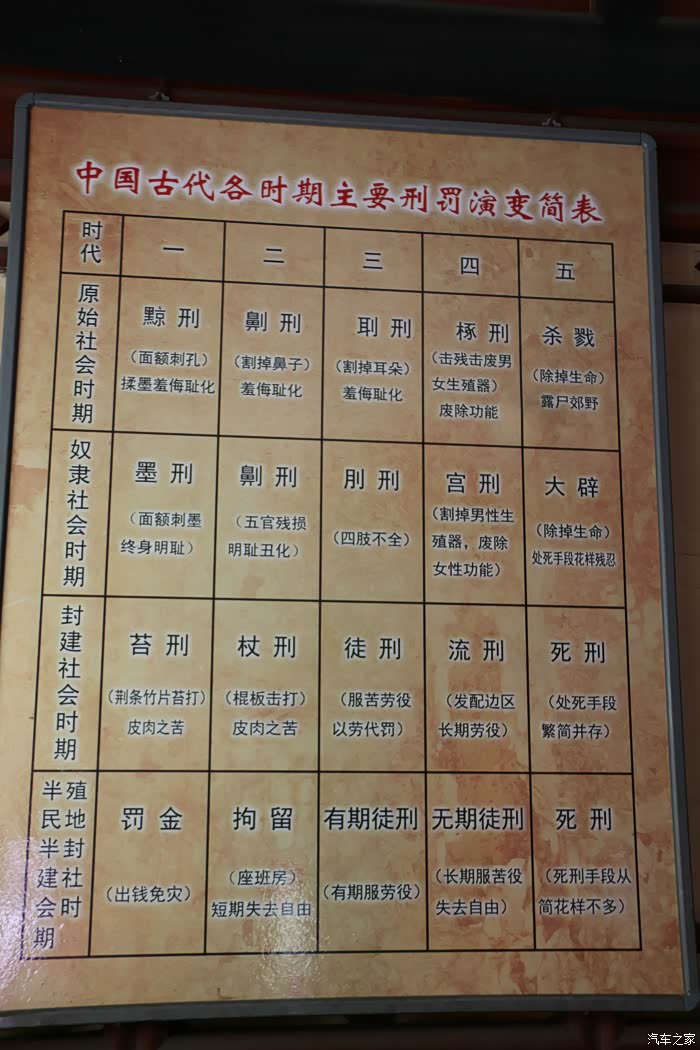 中国古代各时期主要刑罚演变简表
时代 一 二 三 四 五
原始社会时期
黥刑
（面额刺孔）
揉墨羞侮耻化
劓刑
（割掉鼻子）
羞侮耻化
刵刑
（割掉耳朵）
羞侮耻化
椓刑
（击残击废男
女生殖器）
废除功能
杀戮
（除掉生命）
露尸郊野
奴隶社会时期
墨刑
（面额刺墨
终身明耻）
劓刑
（五官残损
明耻丑化）
刖刑
（四肢不全）
宫刑
（割掉男性生
殖器，废除
女性功能）
大辟
（除掉生命）
处死手段花样残忍
封建社会时期
笞刑
（荆条竹片笞打）
皮肉之苦
杖刑
（棍板击打）
皮肉之苦
徒刑
（服苦劳役
以劳代罚）
流刑
（发配边区
长期劳役）
死刑
（处死手段
繁简并存）
半殖
民地
半封
建社
会时
期
罚金
（出钱免灾）
拘留
（座班房）
短期失去自由
有期徒刑
（有期服劳役）
无期徒刑
（长期服苦役
失去自由）
死刑
（死刑手段从
简花样不多）
汽车之家